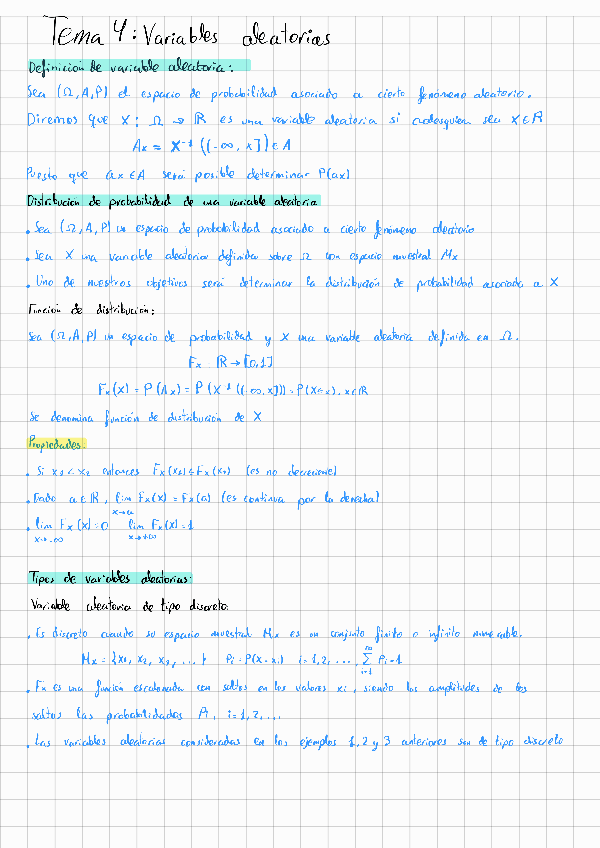 Tema 4: Variables aleatorias
Definición de variable aleatoria:
Sea (Ω, A, P) el espacio de probabilidad asociado a cierto fenómeno aleatorio.
Diremos que X: Ω → ℝ es una variable aleatoria si cualesquiera sea x∈ℝ
Ax = X⁻¹ ((-∞, x]) ∈ A
Puesto que ax ∈ A será posible determinar P(ax)
Distribución de probabilidad de una variable aleatoria
. Sea (Ω, A, P) un espacio de probabilidad asociado a cierto fenómeno aleatorio
. Sea X una variable aleatoria definida sobre Ω con espacio muestral Mx
. Uno de nuestros objetivos será determinar la distribución de probabilidad asociada a X
Función de distribución:
Sea (Ω, A, P) un espacio de probabilidad y X una variable aleatoria definida en Ω.
Fx ℝ → [0,1]
Fx(x) = P(Ax) = P(X⁻¹((-∞, x])) = P(X≤x), x∈ℝ
Se denomina función de distribución de X
Propiedades:
. Si x₁ < x₂ entonces Fx(x₁) ≤ Fx(x₂) (es no decreciente)
. Dado a∈ℝ, lim Fx(x) = Fx(a) (es continua por la derecha)
x→a
. lim Fx(x) = 0 lim Fx(x) = 1
x→-∞ x→+∞
Tipos de variables aleatorias:
Variable aleatoria de tipo discreto:
. Es discreto cuando su espacio muestral Mx es un conjunto finito o infinito numerable.
Mx = {x₁, x₂, x₃, ... } Pi = P(X = xi) i = 1, 2, ... , ∞∑i=1 Pi = 1
. Fx es una función escalonada con saltos en los valores xi, siendo las amplitudes de los
saltos las probabilidades Pi, i = 1, 2, ...
. Las variables aleatorias consideradas en los ejemplos 1, 2 y 3 anteriores son de tipo discreto